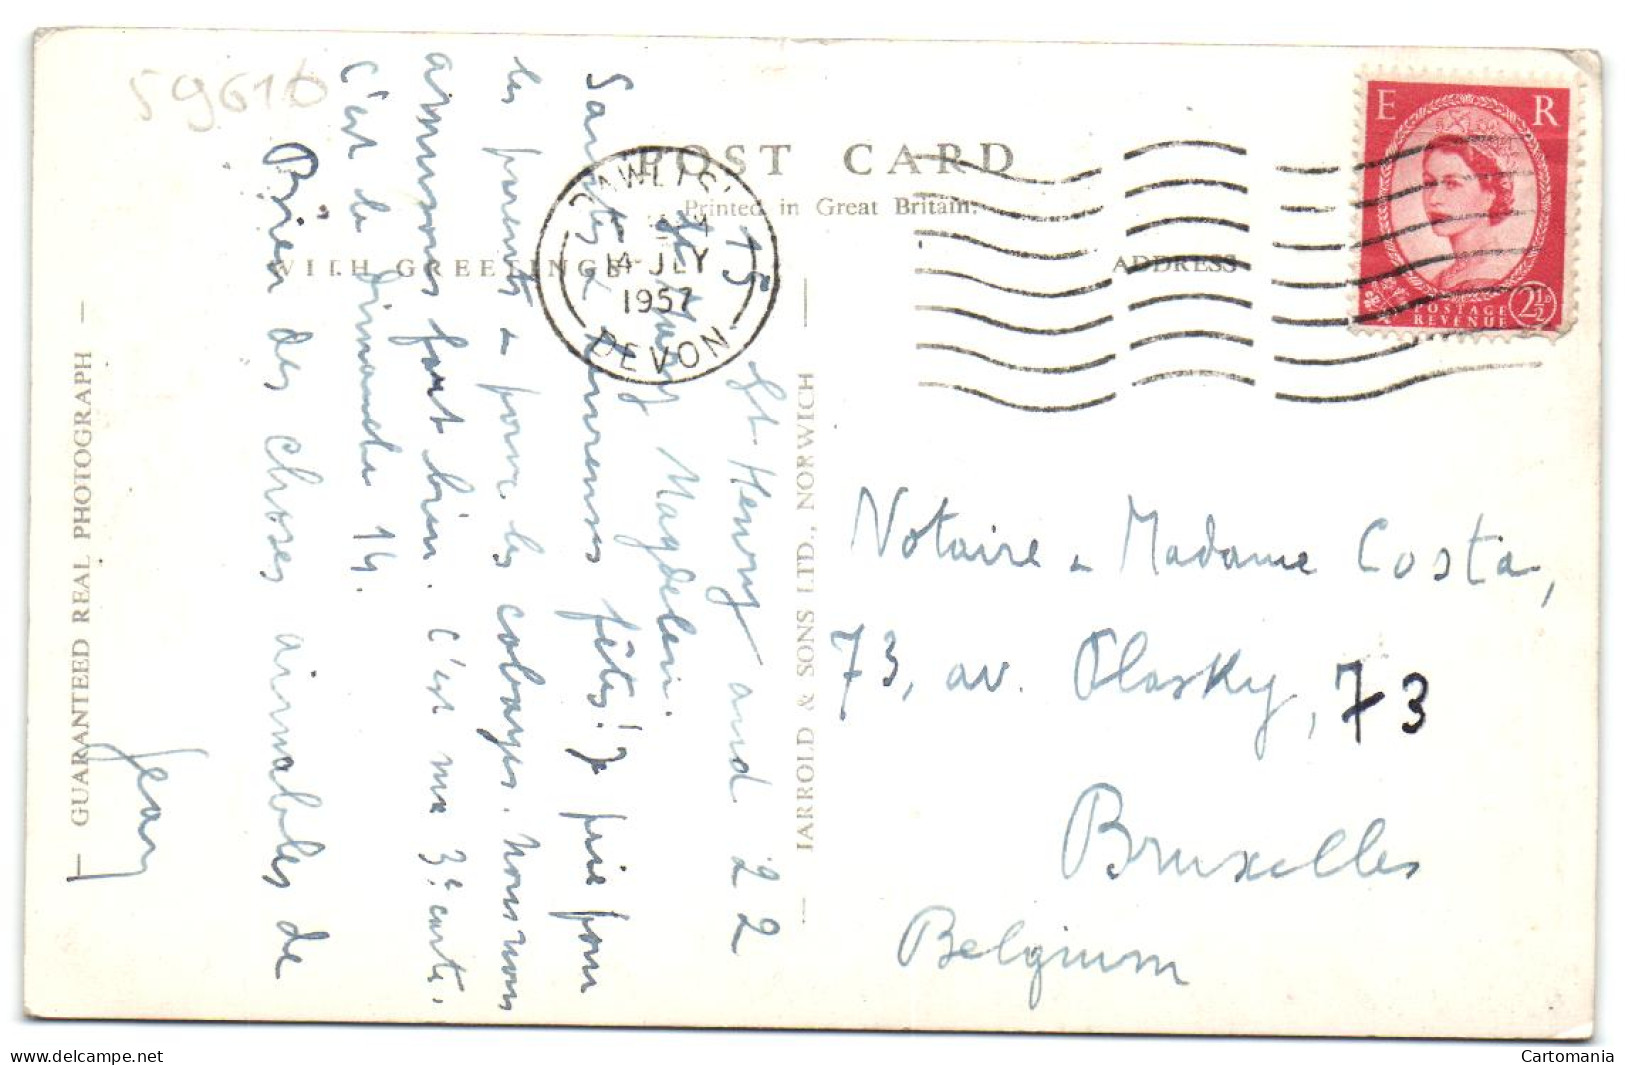 59610
POST CARD
Printed in Great Britain.
WITH GREETINGS
ADDRESS
DAWLISH
14 JLY
1957
DEVON
E R
POSTAGE
REVENUE
2½D
15 St Henry and 22
St Mary Magdelein.
Saintes & heureuses fêtes! Je prie pour
les parents & pour les cobayes. Nous nous
amusons fort bien. C'est ma 3e carte.
C'est le Dimanche 14.
Bien des choses aimables de
Jean
GUARANTEED REAL PHOTOGRAPH
JARROLD & SONS LTD., NORWICH
Notaire & Madame Costa,
73, av. Plasky, 73
Bruxelles
Belgium
Cartomania